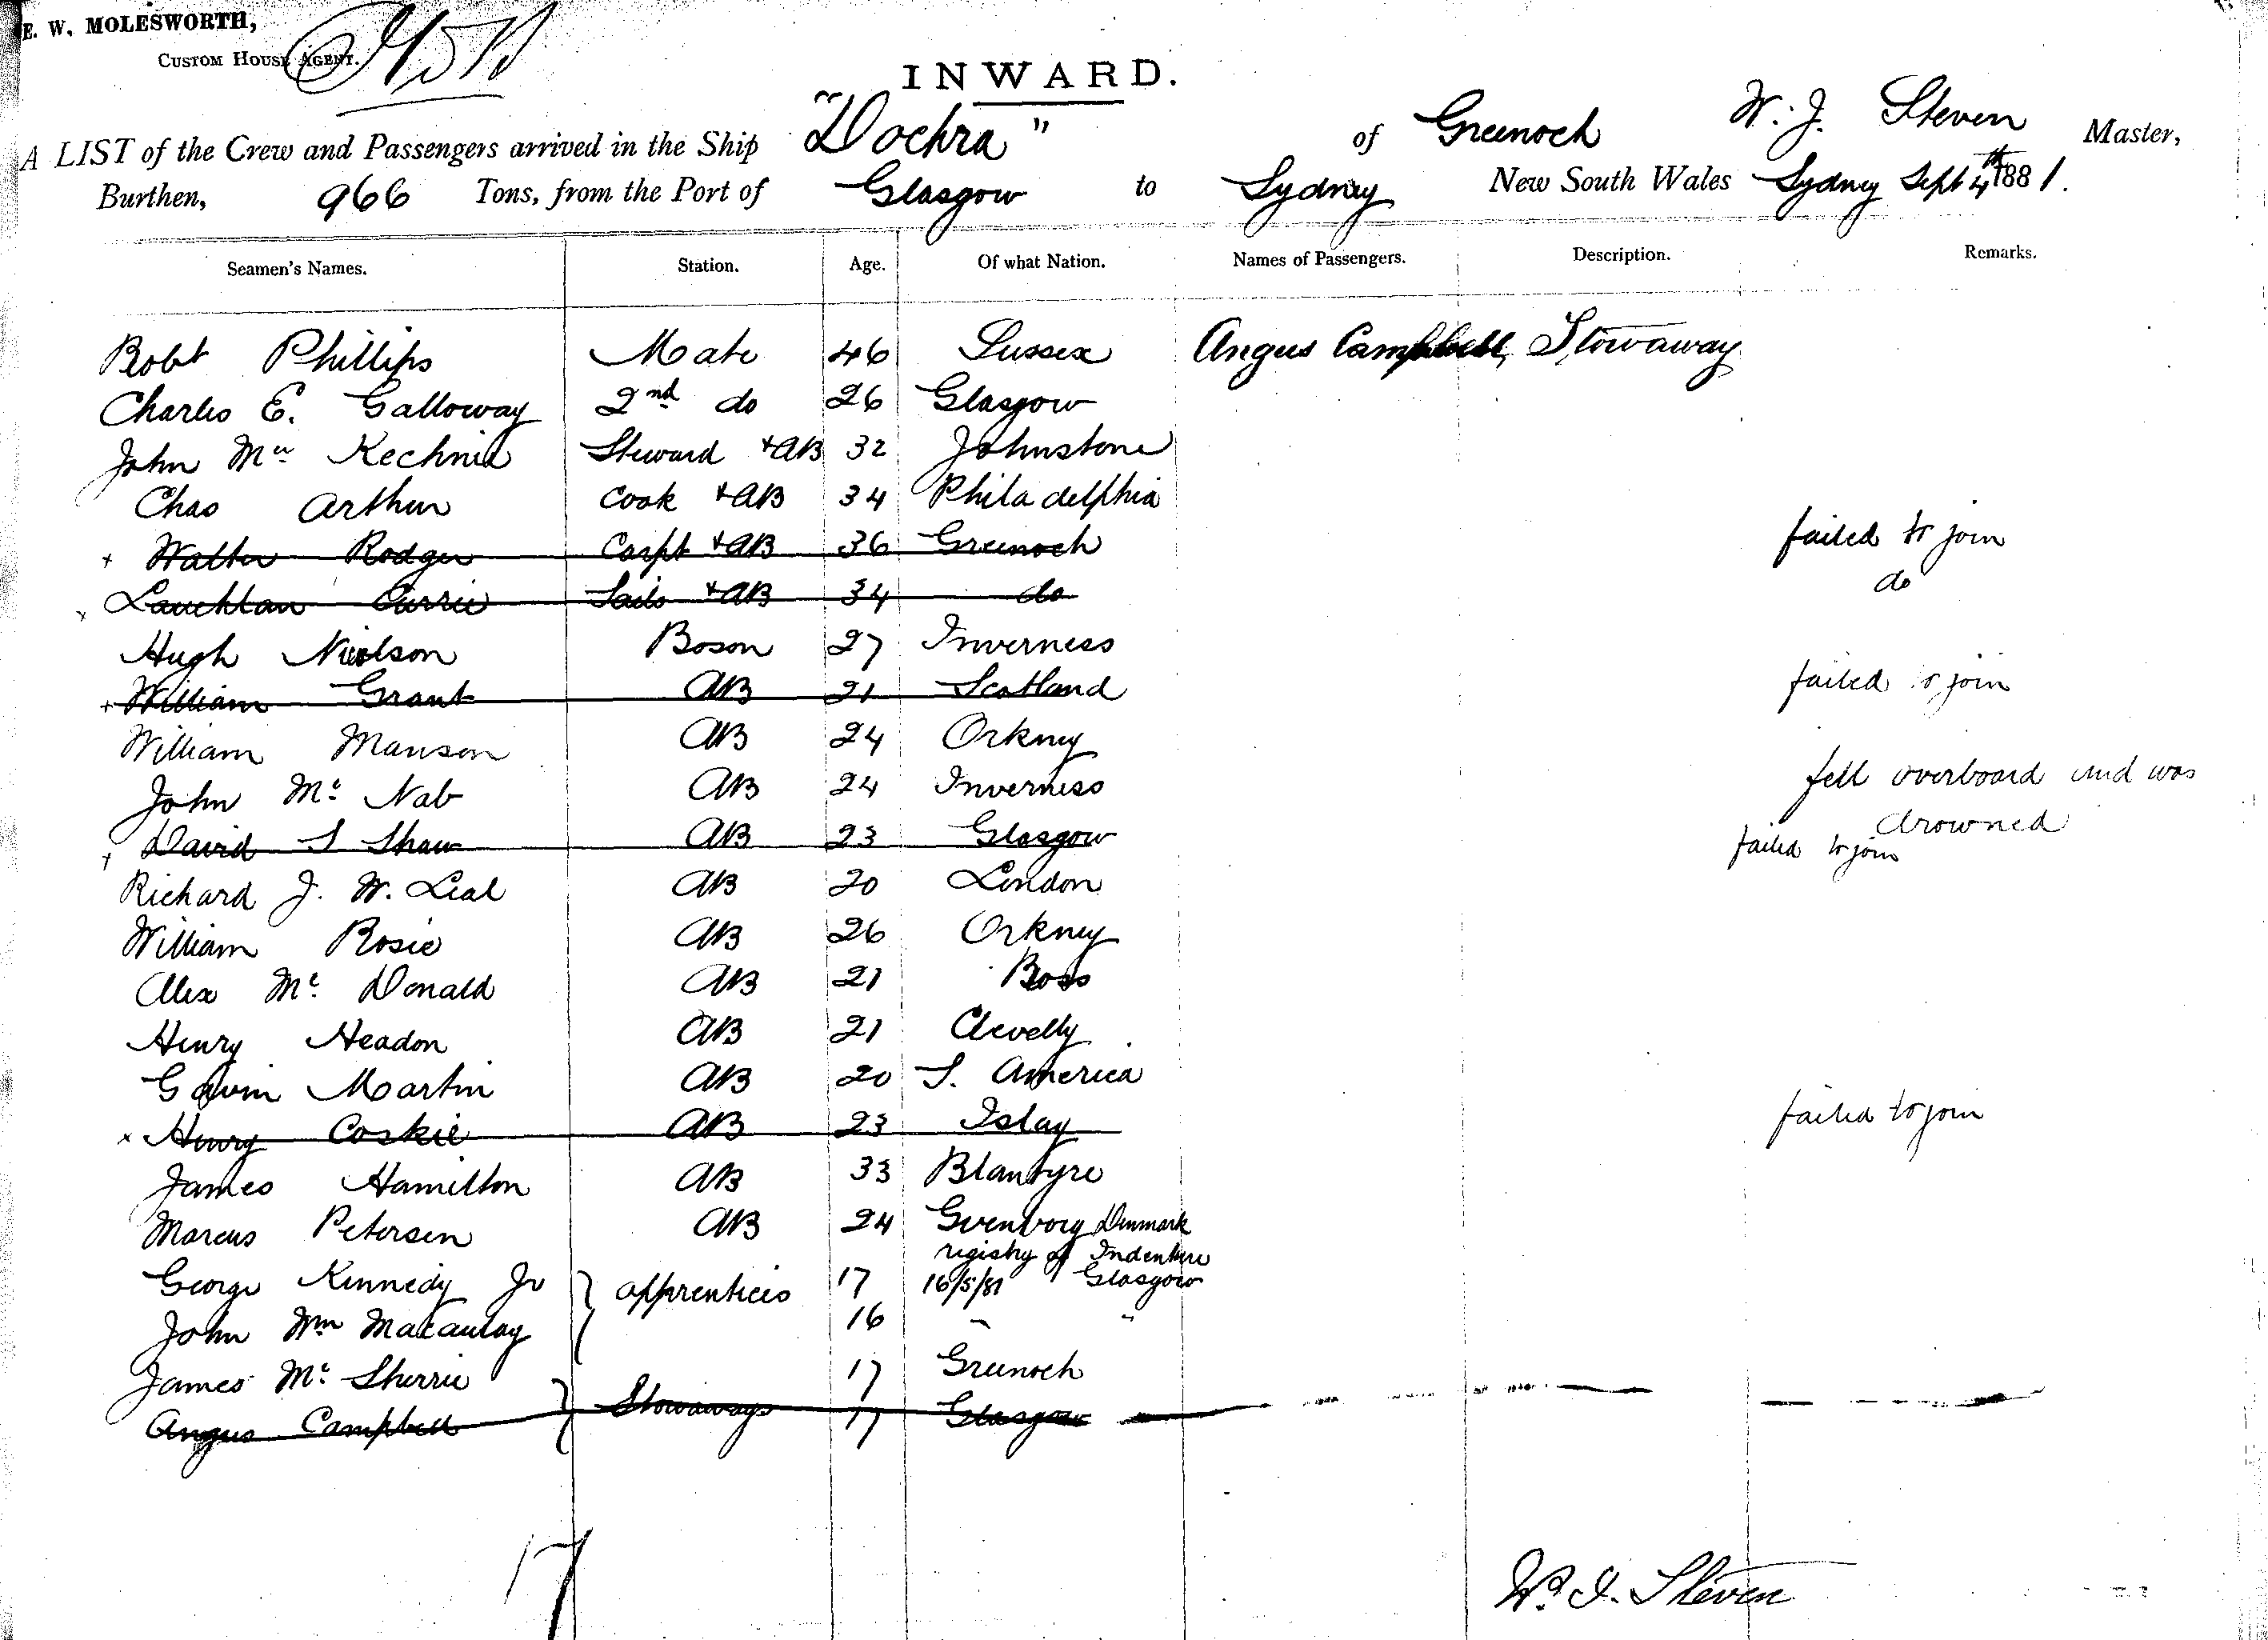 E. W. MOLESWORTH,
CUSTOM HOUSE AGENT.
INWARD.
A LIST of the Crew and Passengers arrived in the Ship "Dochra" of Greenock W. J. Steven Master,
Burthen, 966 Tons, from the Port of Glasgow to Sydney New South Wales Sydney Sept 4th 1881.
Seamen's Names. Station. Age. Of what Nation. Names of Passengers. Description. Remarks.
Robt Phillips Mate 46 Sussex Angus Campbell, Stowaway
Charles E. Galloway 2nd do 26 Glasgow
John Mc Kechnie Steward + AB 32 Johnstone
Chas Arthur Cook + AB 34 Philadelphia
+ Walter Rodger Carpt + AB 36 Greenock failed to join
x Lauchlan Currie Sails + AB 34 do do
Hugh Nielson Boson 27 Inverness
+ William Grant AB 21 Scotland failed to join
William Manson AB 24 Orkney
John Mc Nab AB 24 Inverness fell overboard and was drowned
+ David S Shaw AB 23 Glasgow failed to join
Richard J. W. Leal AB 20 London
William Rosie AB 26 Orkney
Alex Mc Donald AB 21 Ross
Henry Headon AB 21 Clevelly
Gavin Martin AB 20 S. America
x Henry Coskie AB 23 Islay failed to join
James Hamilton AB 33 Blantyre
Marcus Petersen AB 24 Svenborg Denmark
registry of Indenture
George Kennedy Jr apprentices 17 16/5/81 Glasgow
John Wm Macaulay 16 " "
James Mc Sherrie 17 Greenock
Angus Campbell Stowaways 17 Glasgow
17
Wm J. Steven